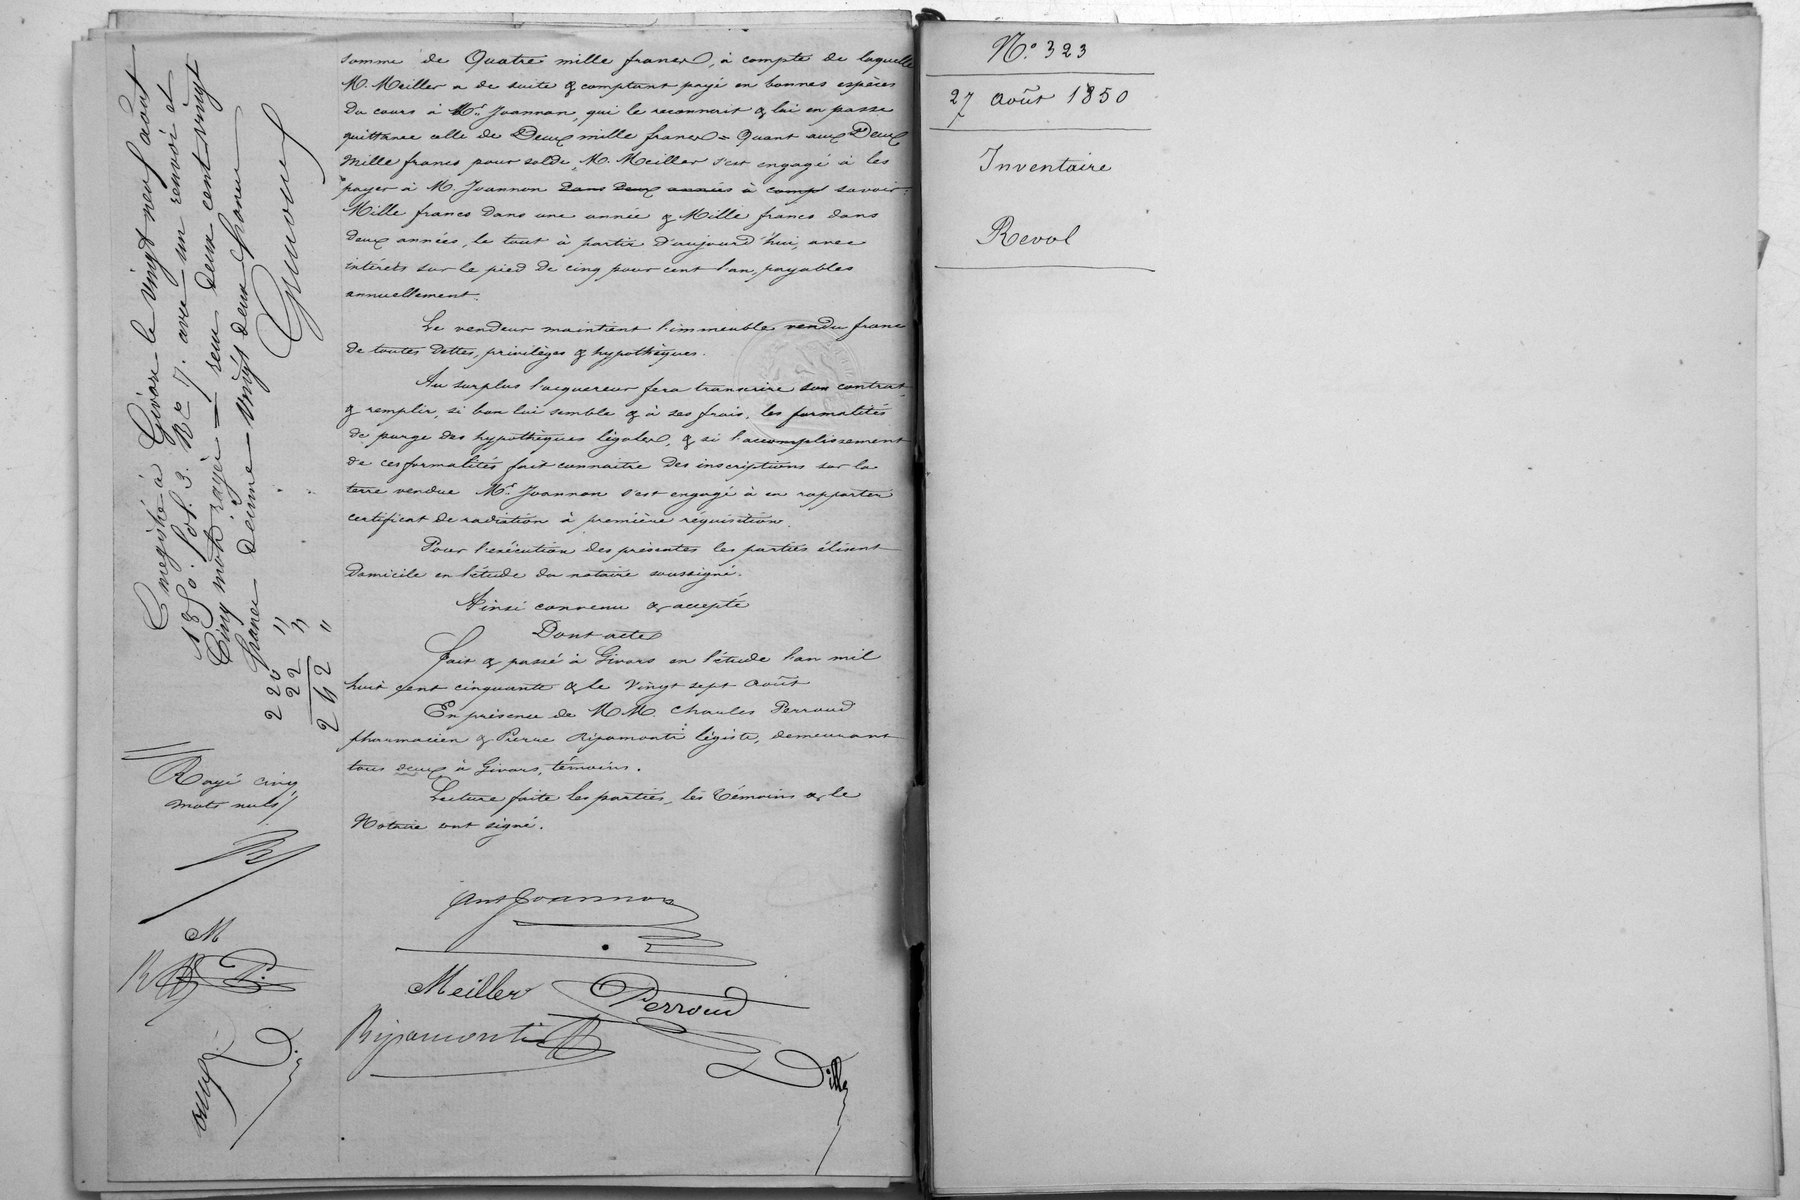 somme de Quatre mille francs, à compte de laquelle
M. Meiller a de suite & comptant payé en bonnes espèces
du cours à Mr. Joannon, qui le reconnait & lui en passe
quittance celle de Deux mille francs = Quant aux Deux
mille francs pour solde, M. Meiller s'est engagé à les
payer à M. Joannon dans deux années à compt savoir:
Mille francs dans une année & Mille francs dans
deux années, le tout à partir d'aujourd'hui, avec
intérêts sur le pied de cinq pour cent l'an, payables
annuellement.
Le vendeur maintient l'immeuble vendu franc
de toutes dettes, privilèges & hypothèques.
Au surplus l'acquereur fera transcrire son contrat
& remplir, si bon lui semble & à ses frais, les formalités
de purge des hypothèques légales, & si l'accomplissement
de ces formalités fait connaitre des inscriptions sur la
terre vendue Mr. Joannon s'est engagé à en rapporter
certificat de radiation à première réquisition.
Pour l'exécution des présentes les parties élisent
domicile en l'étude du notaire soussigné.
Ainsi convenu & accepté
Dont acte
fait & passé à Givors en l'étude l'an mil
huit cent cinquante & le vingt sept août
En présence de MM. Charles Perroud
pharmacien & Pierre Ripamonti légiste, demeurant
tous deux à Givors, témoins.
Lecture faite les parties, les témoins & le
Notaire ont signé.
Ant Joannon
Meiller Perroud
Ripamonti
Enregistré à Givors le vingt neuf août
1850. fol. 3. Rc 7. avec un renvoi et
Cinq mots rayés — reçu deux cent vingt
francs décime vingt deux francs
220 "
22 "
242 "
Rayé cinq
mots nuls
M
P.
N.° 323
27 août 1850
Inventaire
Revol